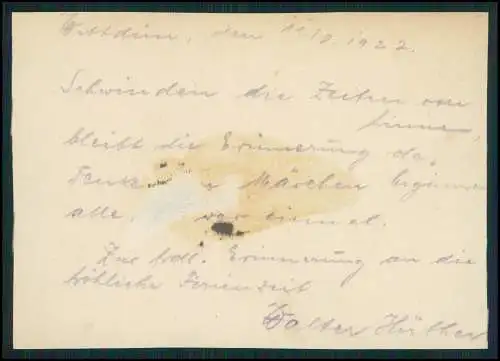 Wittdün, den 11/7. 1922.
Schwinden die Zeiten von
hinnen,
bleibt die Erinnerung da.
Denn Märchen beginnen
alle, war einmal.
Zur frdl. Erinnerung an die
fröhliche Ferienzeit
Walter